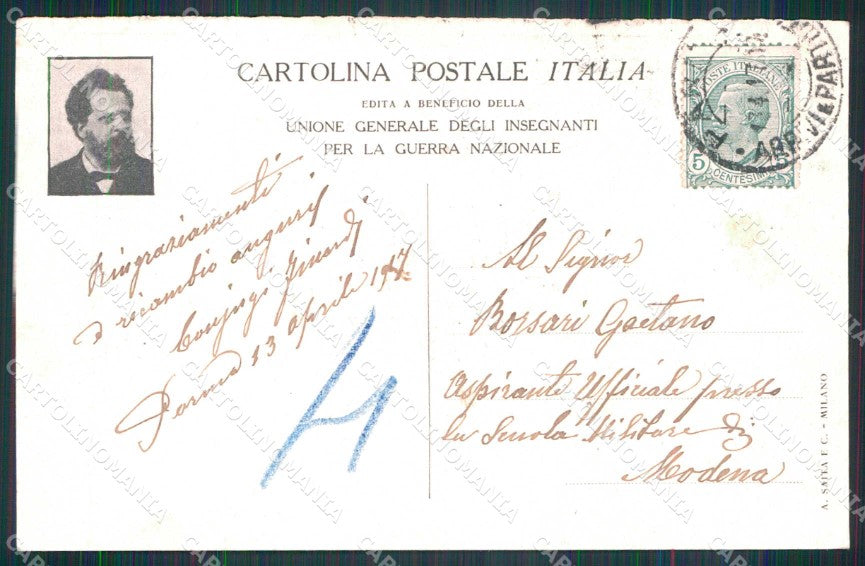 CARTOLINA POSTALE ITALIA
EDITA A BENEFICIO DELLA
UNIONE GENERALE DEGLI INSEGNANTI
PER LA GUERRA NAZIONALE
POSTE ITALIANE
5 CENTESIMI
Ringraziamenti
e ricambio auguri
Coniugi
Parma 13 aprile 1917
H
Al Signor
Borsari Gaetano
Aspirante Ufficiale presso
la Scuola Militare di
Modena
A. SAITA E C. - MILANO
CARTOLINOMANIA